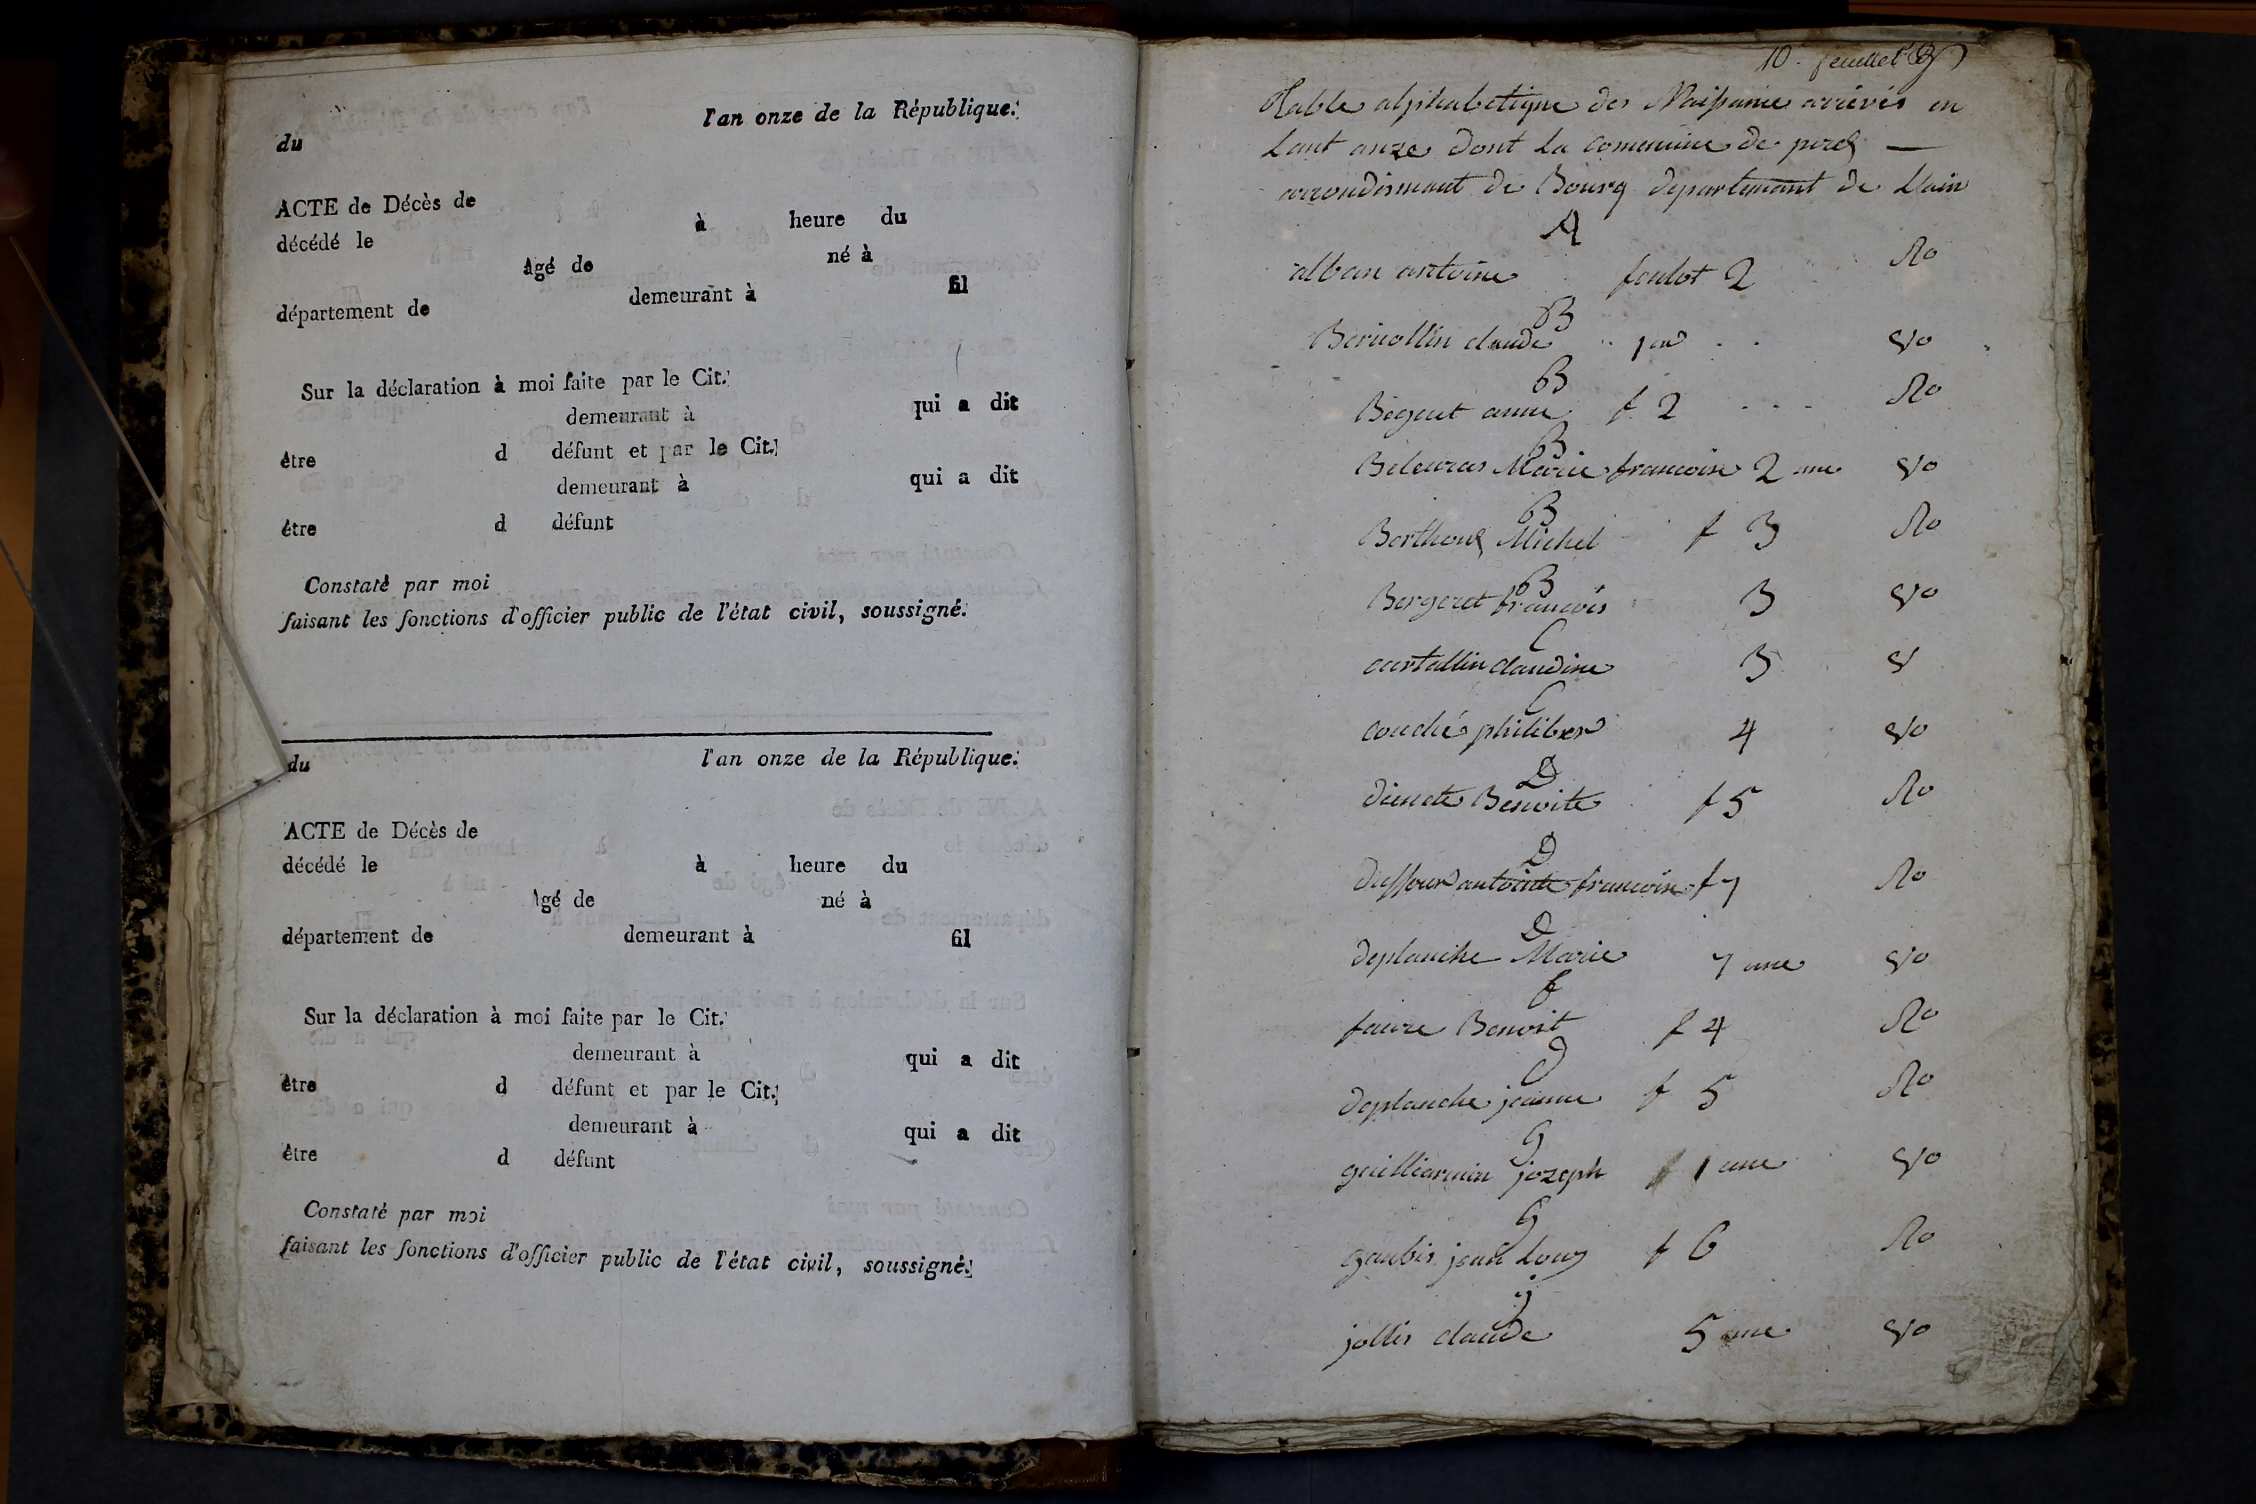 du l'an onze de la République.
ACTE de Décès de
décédé le à heure du
âgé de né à
département de demeurant à fil
Sur la déclaration à moi faite par le Cit.
demeurant à qui a dit
être d défunt et par le Cit.
demeurant à qui a dit
être d défunt
Constaté par moi
faisant les fonctions d'officier public de l'état civil, soussigné.
du l'an onze de la République.
ACTE de Décès de
décédé le à heure du
âgé de né à
département de demeurant à fil
Sur la déclaration à moi faite par le Cit.
demeurant à qui a dit
être d défunt et par le Cit.
demeurant à qui a dit
être d défunt
Constaté par moi
faisant les fonctions d'officier public de l'état civil, soussigné.
10. feuillet
Table alphabetique des Naissance arrivés en
Lant onze dont la commune de
arrondismant de Bourg departemant de Lain
A
alban antoine foulot 2 Ro
B
Bericollin claude 1er Vo
B
Begout anne f 2 Ro
B
Marie francoise 2 me Vo
B
Berthoud Michel f 3 Ro
B
Bergeret francois 3 Vo
C
cartallin claudine 3 V
C
couché philiber 4 Vo
D
Benoite f 5 Ro
D
duffour antoinete francoise f 7 Ro
D
deplanche Marie 7 me Vo
f
favre Benoit f 4 Ro
D
deplanche jeanne f 5 Ro
G
guilliermin jozeph f 1 me Vo
G
gaubis jean Louy f 6 Ro
j
jollis claude 5 me Vo